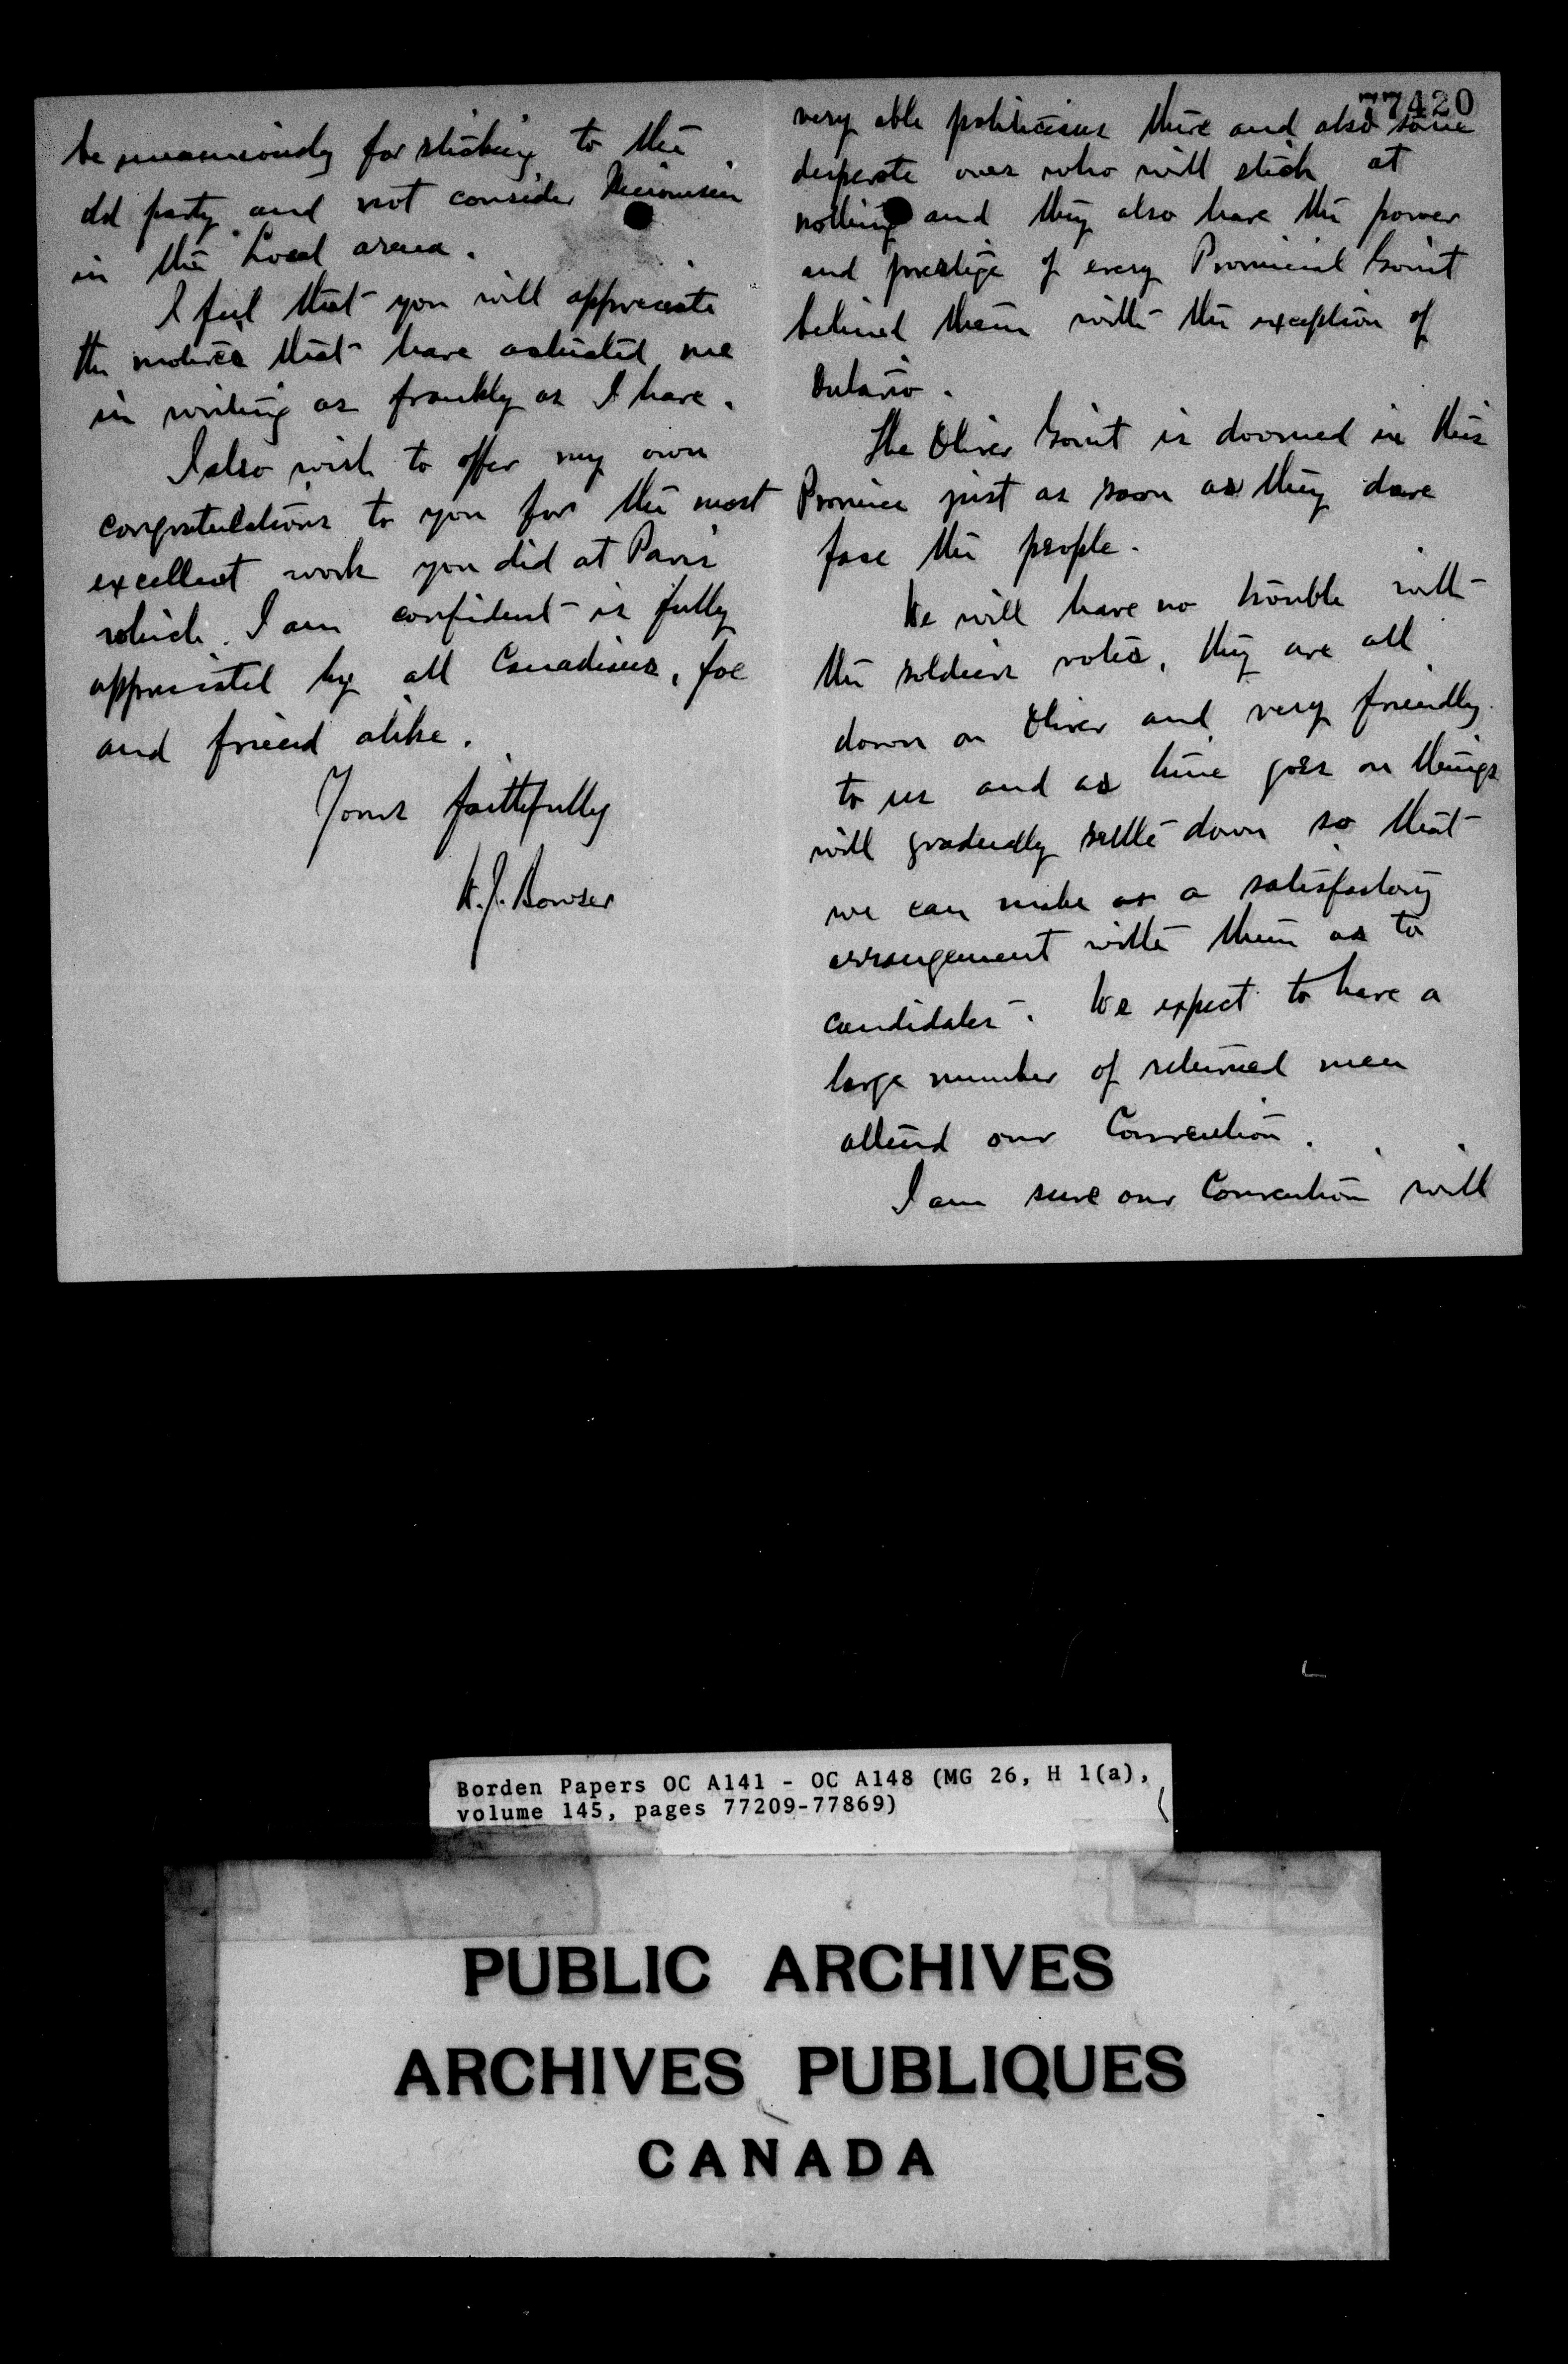 77420
very able politicians there and also some
desperate ones who will stick at
nothing and they also have the power
and prestige of every Provincial Govnt
behind them with the exception of
Ontario.
The Oliver Govnt is doomed in this
Province just as soon as they dare
face the people.
We will have no trouble with
the soldiers votes, they are all
down on Oliver and very friendly
to us and as time goes on things
will gradually settle down so that
we can make as a satisfactory
arrangement with them as to
candidates. We expect to have a
large number of returned men
attend our Convention.
I am sure our Convention will
be unanimously for sticking to the
old party and not consider Unionism
in the Local arena.
I feel that you will appreciate
the motives that have actuated me
in writing as frankly as I have.
I also wish to offer my own
congratulations to you for the most
excellent work you did at Paris
which I am confident is fully
appreciated by all Canadians, foe
and friend alike.
Yours faithfully
W.J. Bowser
Borden Papers OC A141 - OC A148 (MG 26, H 1(a),
volume 145, pages 77209-77869)
PUBLIC ARCHIVES
ARCHIVES PUBLIQUES
CANADA